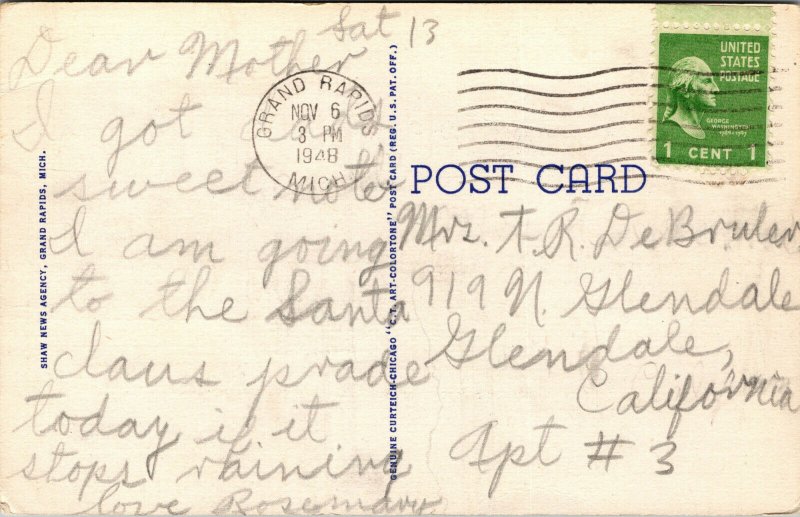 Sat 13
Dear Mother
I got
sweet note
I am going
to the Santa
claus prade
today if it
stops raining
love Rosemary
GRAND RAPIDS
NOV 6
3 PM
1948
MICH.
SHAW NEWS AGENCY, GRAND RAPIDS, MICH.
GENUINE CURTEICH-CHICAGO "C.T. ART-COLORTONE" POST CARD (REG. U.S. PAT. OFF.)
UNITED
STATES
POSTAGE
GEORGE
WASHINGTON
1789-1797
1 CENT 1
POST CARD
Mrs. A. R. DeBruler
919 N. Glendale
Glendale,
California
Apt #3